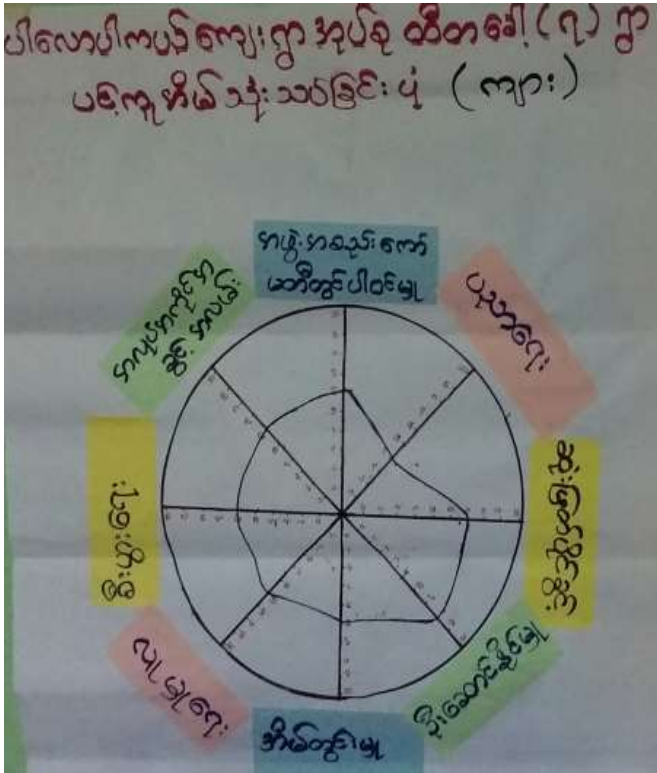 ပါလောပါကယ်ကျေးရွာအုပ်စု ထီတခေါ့(၇)ရွာ
ပင့်ကူအိမ်သုံးသပ်ခြင်းပုံ (ကျား)
အဖွဲ့အစည်းကော်
မတီတွင်ပါဝင်မှု
ပညာရေး
ဦးဆောင်နိုင်မှု
အိမ်တွင်းမှု
လူမှုရေး
စီးပွါး
အလုပ်အကိုင်အ
ခွင့်အလမ်း